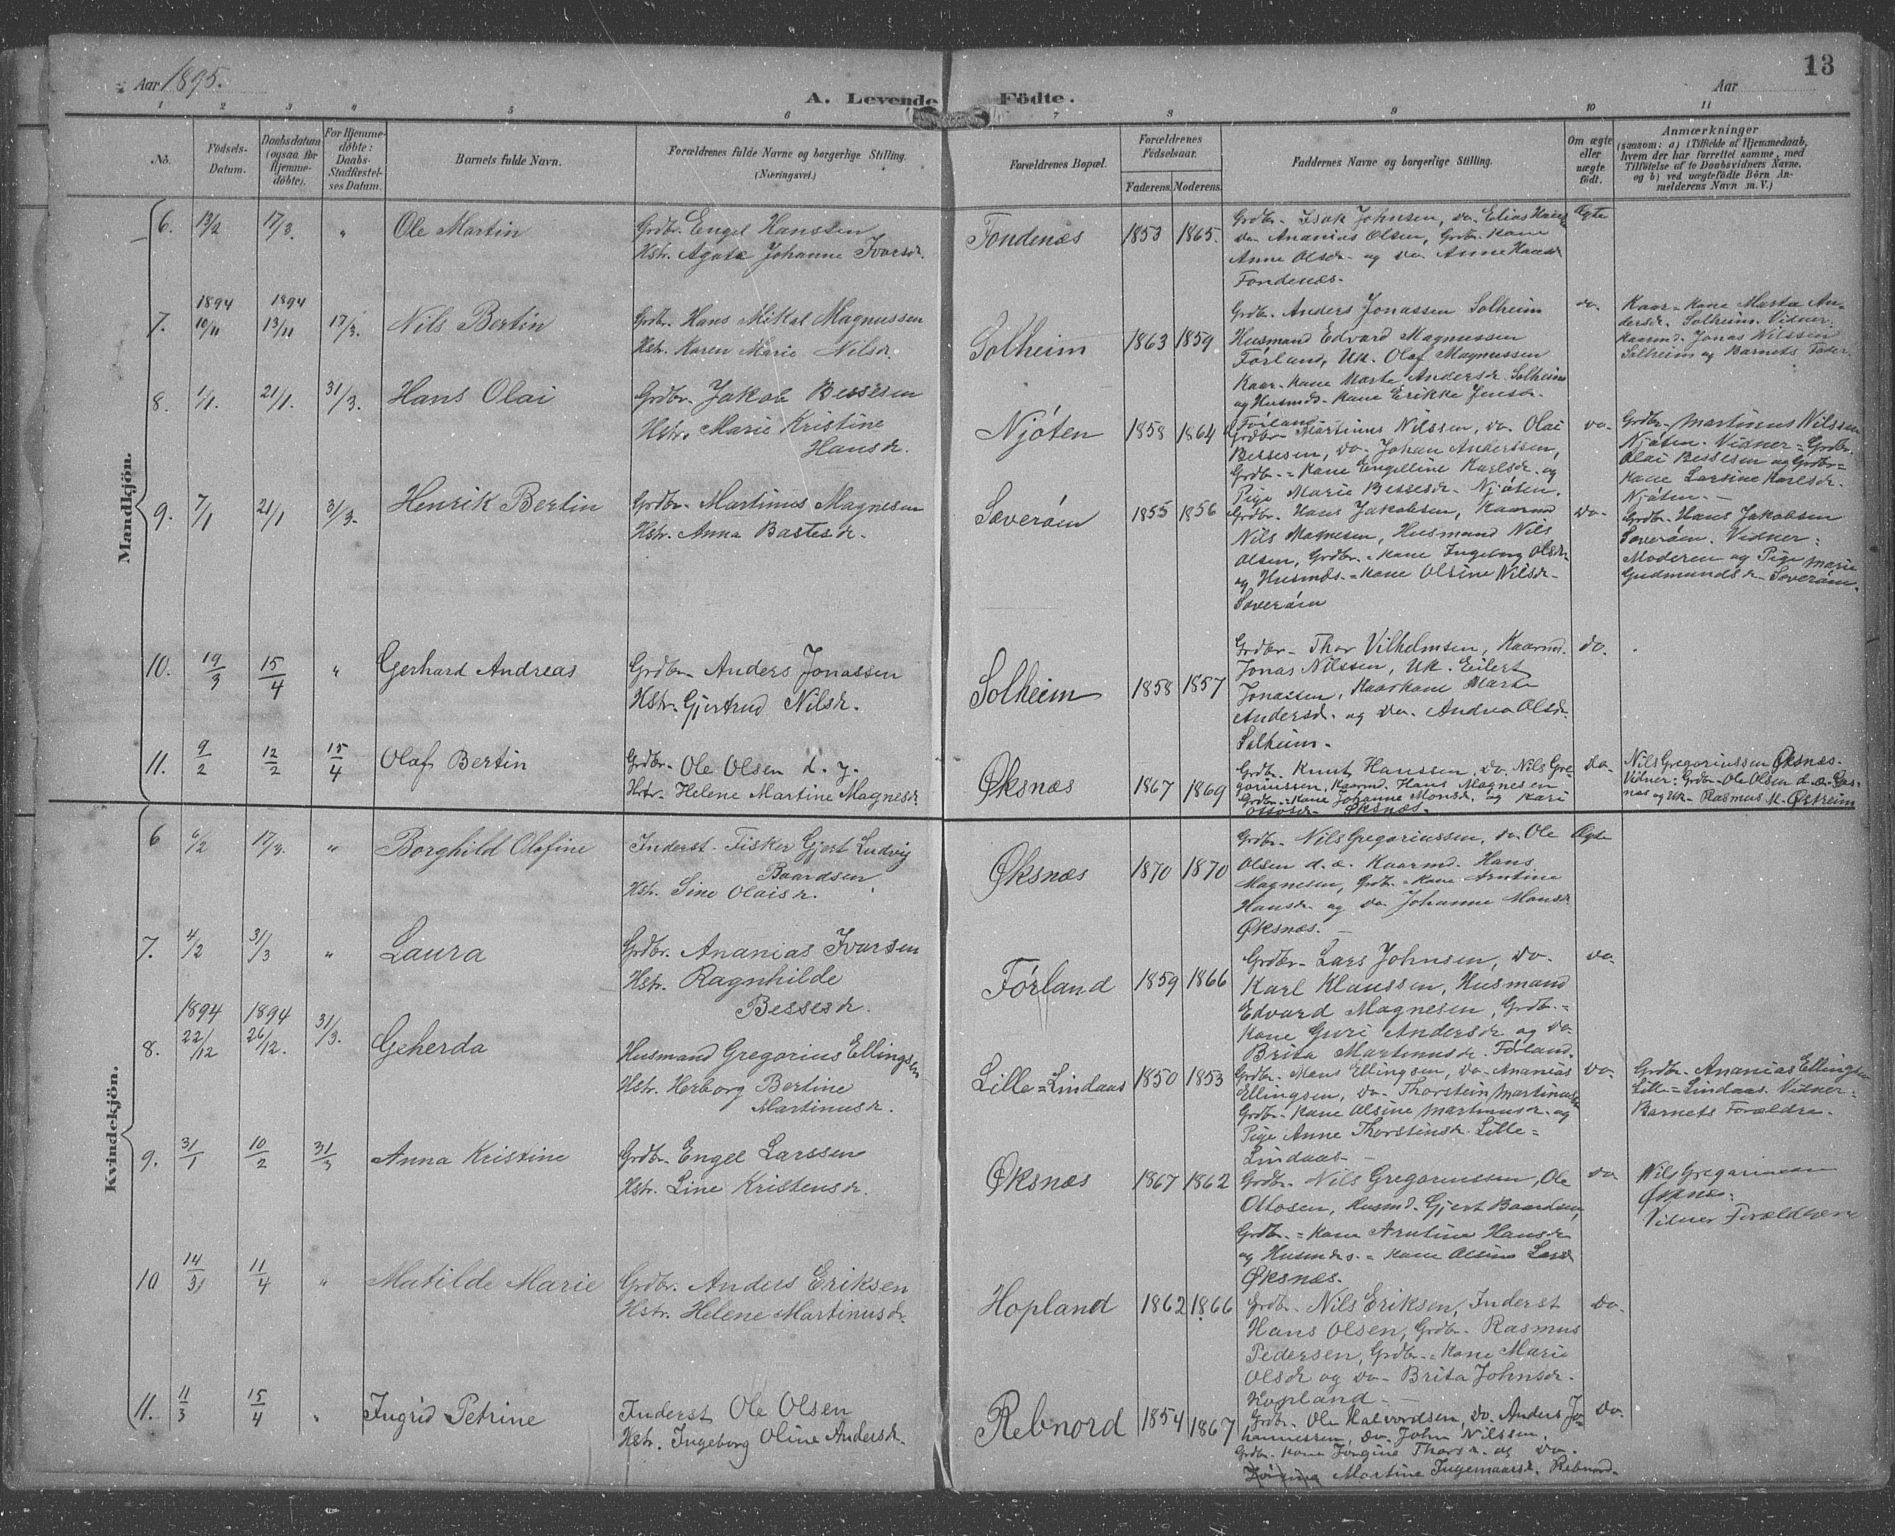 Aar 1895.
A. Levende Födte.
Aar
13
1 2 3 4 5 6 7 8 9 10 11
No.
Födsels-Datum.
Daabsdatum (ogsaa for Hjemmedöbte).
For Hjemmedöbte: Daabs-Stadfæstelses Datum.
Barnets fulde Navn.
Forældrenes fulde Navne og borgerlige Stilling. (Næringsvei.)
Forældrenes Bopæl.
Forældrenes Födselsaar.
Faderens. Moderens.
Faddernes Navne og borgerlige Stilling.
Om ægte eller uægte födt.
Anmærkninger
(saasom: a) i Tilfælde af Hjemmedaab, hvem der har forrettet samme, med Tilföielse af to Daabsvidners Navne, og b) ved uægtefödte Börn Anmelderens Navn m. V.)
Mandkjön.
6. 13/2 17/3. " Ole Martin
Grdbr. Engel Hanssen
Hstr. Agate Johanne Ivarsdr.
Fondenæs 1853 1865.
Grdbr. Isak Johnsen, do. Elias Hans
do Ananias Olsen, Grdbr. Kone
Anne Olsdr. og do Anne Hansdr
Fondenæs.
Ægte
7. 1894 10/11 1894 13/11 17/3. Nils Bertin
Grdbr. Hans Mikal Magnussen
Hstr. Karen Marie Nilsdr.
Solheim 1863 1859
Grdbr. Anders Jonassen Solheim
Husmand Edvard Magnussen
Førland, Uk. Olaf Magnussen
Kaar-kone Marte Andersdr. Solheim
og Husmds-kone Erikke Jensdr.
Førland
do.
Kaar-kone Marta An-
dersdr. Solheim. Vidner:
Kaarmd. Jonas Nilssen
Solheim og Barnets Fader.
8. 1/1. 21/1. 31/3. Hans Olai
Grdbr. Jakob Bessesen
Hstr. Marie Kristine
Hansdr.
Njöten 1858 1864
Grdbr Martinus Nilssen, do. Olai
Bessesen, do. Johan Anderssen,
Grdbr.=kone Engelline Karlsdr. og
Pige Marie Bessesdr. Njöten.
do.
Grdbr. Martinus Nilssen
Njöten. Vidner= Grdbr.
Olai Bessesen og Grdbr=
kone Larsine Karlsdr.
Njöten.
9. 7/1 21/1 31/3. Henrik Bertin
Grdbr. Martinus Magnesen
Hstr. Anna Bastesdr.
Sæveröen 1855 1856
Grdbr. Hans Jakobsen, Kaarmd
Nils Magnesen, Husmand Nils
Olsen, Grdbr.-kone Ingeborg Olsdr.
og Husmds.=kone Olsine Nilsdr.
Sæveröen
do.
Grdbr. Hans Jakobsen
Sæveröen. Vidner:
Moderen og Pige Marie
Gudmundsdr. Sæveröen.
10. 19/3 15/4 " Gerhard Andreas
Grdbr. Anders Jonassen
Hstr. Gjertrud Nilsdr.
Solheim 1858 1857
Grdbr. Thor Vilhelmsen, Kaarmd.
Jonas Nilssen, Uk. Eilert
Jonassen, Kaarkone Marta
Andersdr. og do. Andrea Olsdr.
Solheim.
do.
11. 9/2 12/2 15/4 Olaf Bertin
Grdbr. Ole Olsen d. y.
Hstr. Helene Martine Magnesdr.
Øksnæs 1867 1869
Grdbr. Knut Hanssen, do. Nils Gre-
goriussen, Kaarmd. Hans Magnesen
Grdbr.-kone Johanne Monsdr, og Kari
Ottosdr. Øksnæs.
do.
Nils Gregoriussen Øksnæs.
Vidner: Grdbr. Ole Olsen d. æ. Øks-
næs og Uk. Rasmus Østreim
Kvindekjön.
6 6/2 17/3. " Borghild Olafine
Inderst. Fisker Gjert Ludvig
Baardsen
Hstr. Sine Olaisdr.
Øksnæs 1870 1870
Grdbr. Nils Gregoriussen, do. Ole
Olsen d. æ. Kaarmd. Hans
Magnesen, Grdbr.=kone Arntine
Hansdr og do Johanne Monsdr
Øksnæs.
Ægte
7. 4/2 31/3 " Laura
Grdbr. Ananias Ivarsen
Hstr. Ragnhilde
Bessesdr.
Førland 1859 1866
Grdbr. Lars Johnsen, do.
Karl Klaussen, Husmand
Edvard Magnesen, Grdbr.=
kone Guri Andersdr og do.
Brita Martinusdr. Førland.
do.
8. 1894 22/12 1894 26/12. 31/3. Geherda
Husmand Gregorius Ellingsen
Hstr. Herborg Bertine
Martinusdr.
Lille=Lindaas 1850 1853
Grdbr. Mons Ellingsen, do. Ananias
Ellingsen, do. Thorstein Martinussen
Grdbr. kone Olsine Martinusdr. og
Pige Anne Thorstinsdr. Lille=
Lindaas
do.
Grdbr. Ananias Ellingsen
Lille=Lindaas. Vidner:
Barnets Forældre.
9. 31/1 10/2 31/3 Anna Kristine
Grdbr. Engel Larssen
Hstr. Line Kristensdr.
Øksnæs 1867 1862
Grdbr. Nils Gregoriussen, Ole
Ottosen, Husmd. Gjert Baardsen,
Grdbr.=kone Arntine Hansdr
og Husmds.=kone Olsine Larsdr
Øksnæs.
do
Nils Gregoriussen
Øksnæs.
Vidner Forældrene
10 14/31 11/4 " Matilde Marie
Grdbr. Anders Eriksen
Hstr. Helene Martinusdr.
Hopland 1862 1866
Grdbr. Nils Eriksen, Inderst
Hans Olsen, Grdbr. Rasmus
Pedersen, Grdbr.=kone Marie
Olsdr og do. Brita Johnsdr.
Hopland
do.
11. 11/3 15/4 " Ingrid Petrine
Inderst Ole Olsen
Hstr. Ingeborg Oline Andersdr.
Rebnord 1854 1867
Grdbr. Ole Halvordsen, do. Anders Jo-
hannessen, do. John Nilssen.
Grdbr. kone Jørgine Thorsdr. og do.
Martine Ingemarsdr. Rebnord.
do.